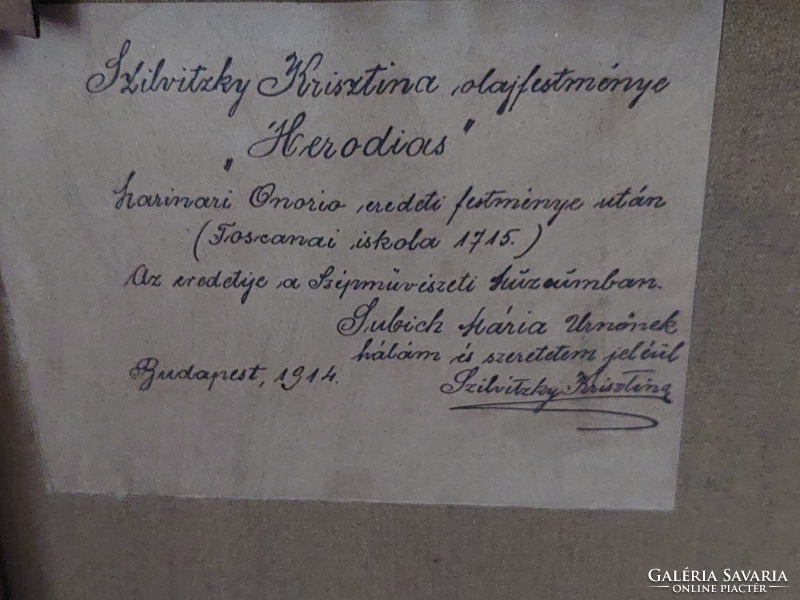 Szilvitzky Krisztina olajfestménye
„Herodias"
Marinari Onorio eredeti festménye után
(Toscanai iskola 1715.)
Az eredetije a Szépművészeti Múzeumban.
Subich Mária Urnőnek
hálám és szeretetem jeléül
Budapest, 1914. Szilvitzky Krisztina
GALÉRIA SAVARIA
ONLINE PIACTÉR